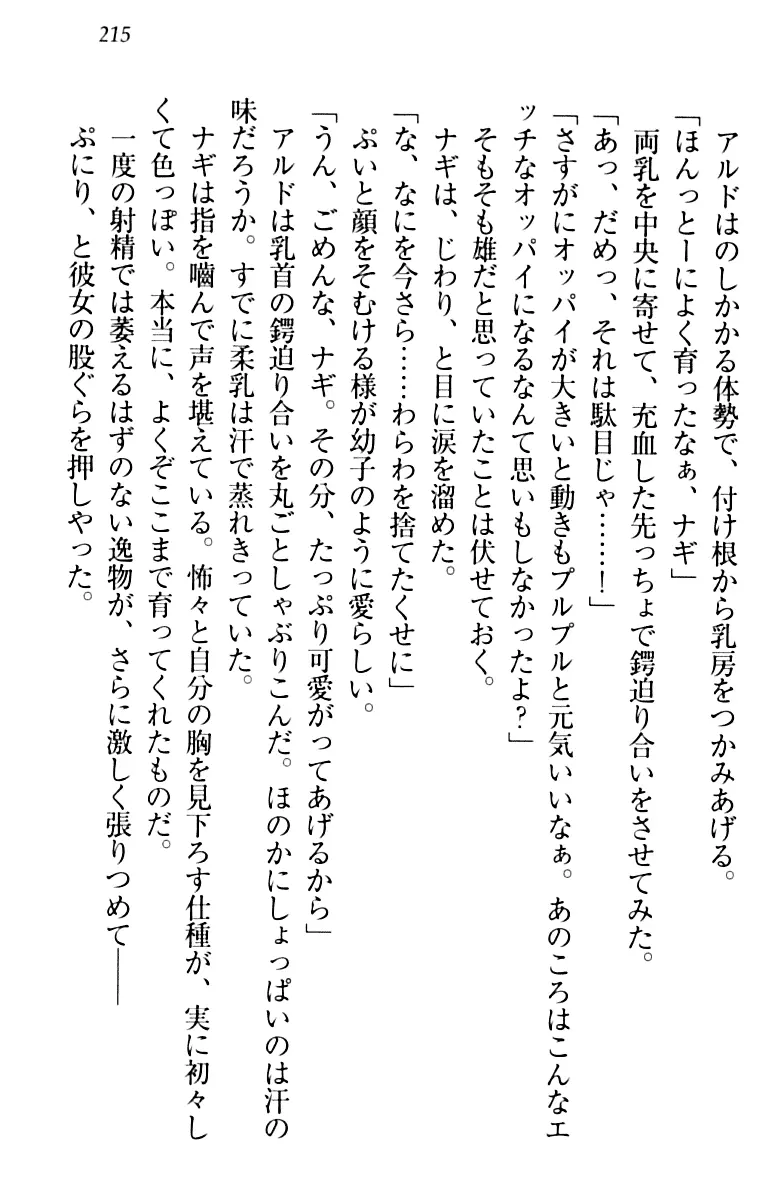 215
アルドはのしかかる体勢で、付け根から乳房をつかみあげる。
「ほんっとーによく育ったなぁ、ナギ」
両乳を中央に寄せて、充血した先っちょで鍔迫り合いをさせてみた。
「あっ、だめっ、それは駄目じゃ……！」
「さすがにオッパイが大きいと動きもプルプルと元気いいなぁ。あのころはこんなエ
ッチなオッパイになるなんて思いもしなかったよ？」
そもそも雄だと思っていたことは伏せておく。
ナギは、じわり、と目に涙を溜めた。
「な、なにを今さら……わらわを捨てたくせに」
ぷいと顔をそむける様が幼子のように愛らしい。
「うん、ごめんな、ナギ。その分、たっぷり可愛がってあげるから」
アルドは乳首の鍔迫り合いを丸ごとしゃぶりこんだ。ほのかにしょっぱいのは汗の
味だろうか。すでに柔乳は汗で蒸れきっていた。
ナギは指を嚙んで声を堪えている。怖々と自分の胸を見下ろす仕種が、実に初々し
くて色っぽい。本当に、よくぞここまで育ってくれたものだ。
一度の射精では萎えるはずのない逸物が、さらに激しく張りつめて――
ぷにり、と彼女の股ぐらを押しやった。